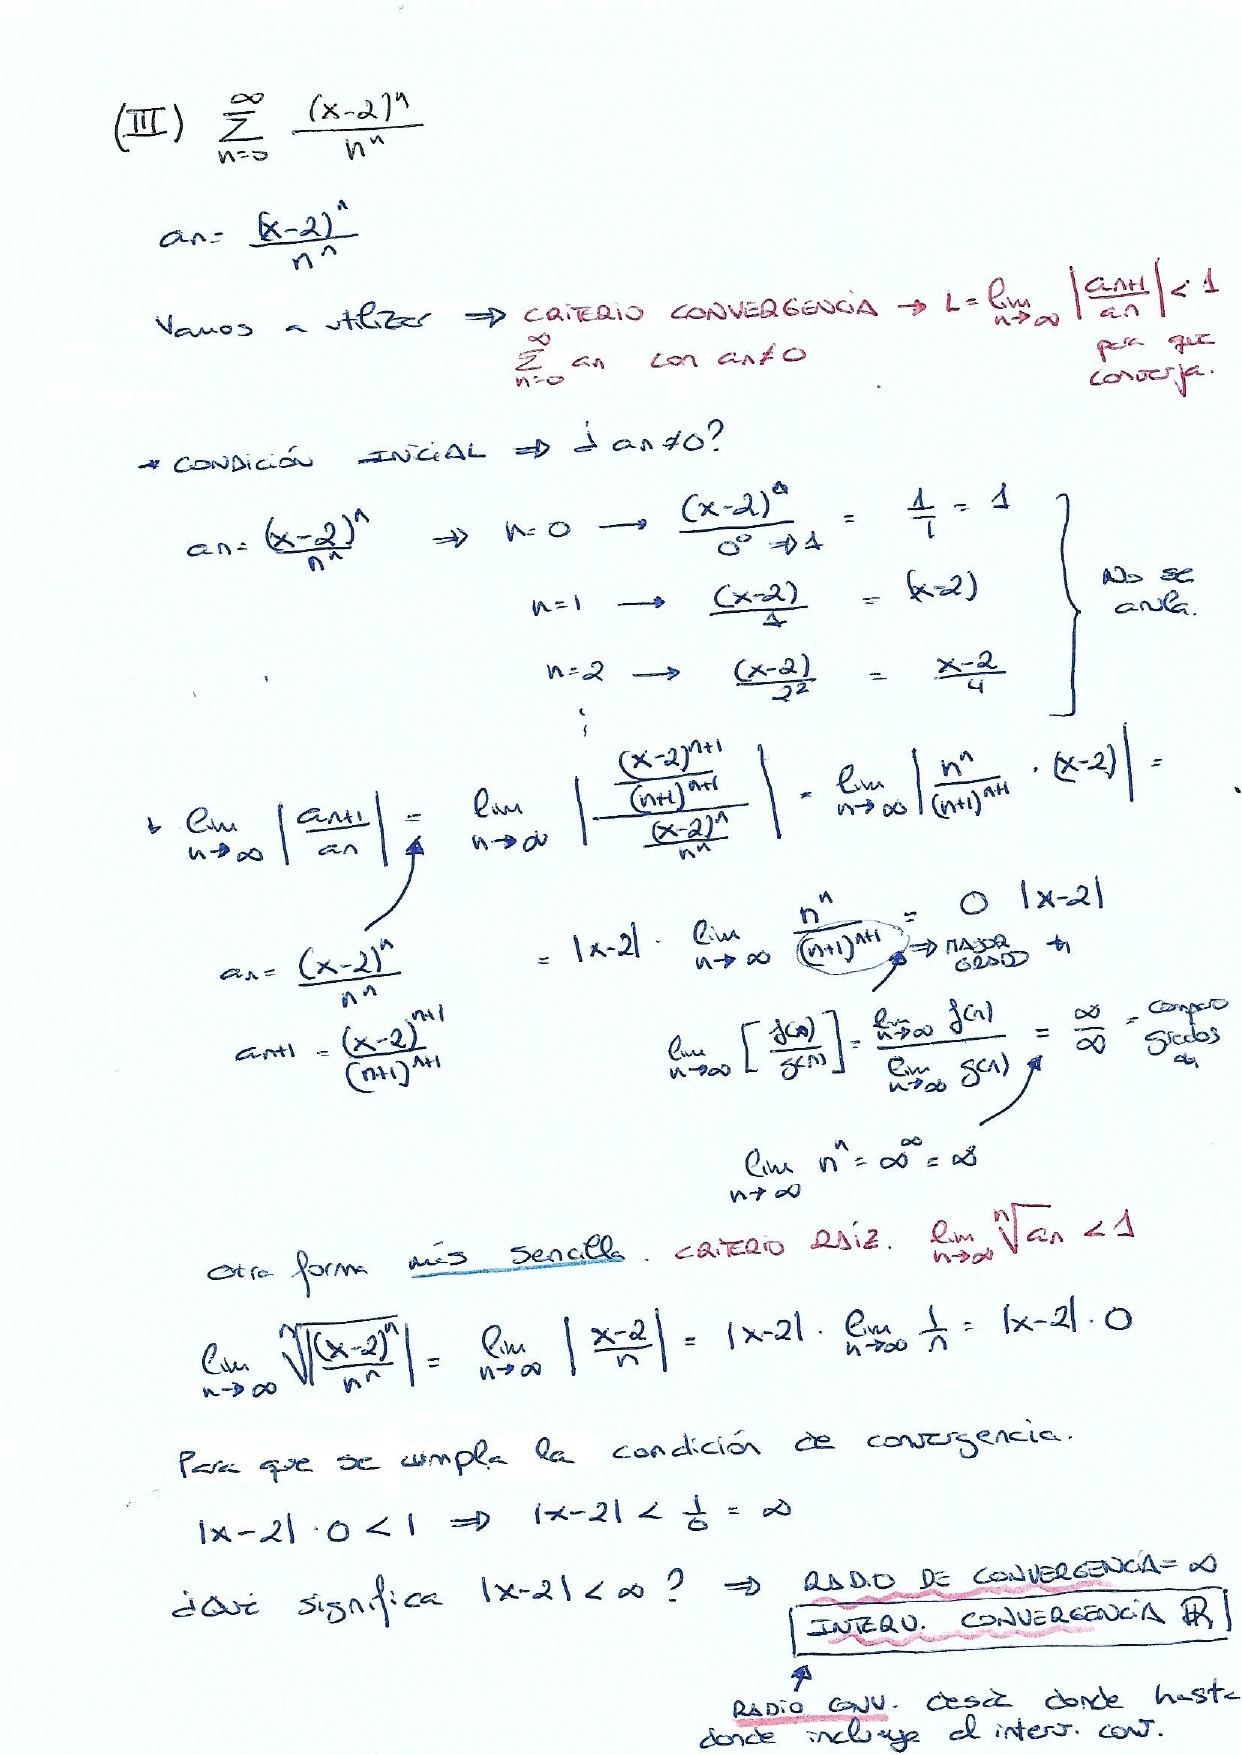 (III) ∞ Σ n=0 (x-2)^n / n^n
an= (x-2)^n / n^n
Vamos a utilizar ⇒ CRITERIO CONVERGENCIA → L= lim n→∞ |an+1 / an| < 1
∞ Σ n=0 an con an≠0 para que
converja.
→ CONDICIÓN INICIAL ⇒ ¿ an≠0?
an= (x-2)^n / n^n ⇒ n=0 → (x-2)^0 / 0^0 ⇒1 = 1/1 = 1
n=1 → (x-2) / 1 = (x-2) No se
anula.
n=2 → (x-2) / 2^2 = x-2 / 4
lim n→∞ |an+1 / an| = lim n→∞ |(x-2)^n+1 / (n+1)^n+1 / (x-2)^n / n^n| = lim n→∞ |n^n / (n+1)^n+1 · (x-2)| =
= |x-2| · lim n→∞ n^n / (n+1)^n+1 = 0 |x-2|
⇒ MAJOR
GRADO
an= (x-2)^n / n^n
an+1 = (x-2)^n+1 / (n+1)^n+1
lim n→∞ [f(n) / g(n)] = lim n→∞ f(n) / lim n→∞ g(n) = ∞/∞ = comparo
grados
lim n→∞ n^n = ∞^∞ = ∞
Otra forma más sencilla. CRITERIO RAIZ. lim n→∞ n√an < 1
lim n→∞ n√|(x-2)^n / n^n| = lim n→∞ |x-2 / n| = |x-2| · lim n→∞ 1/n = |x-2| · 0
Para que se cumpla la condición de convergencia.
|x-2| · 0 < 1 ⇒ |x-2| < 1/0 = ∞
¿Qué significa |x-2| < ∞ ? ⇒ RADIO DE CONVERGENCIA = ∞
INTERV. CONVERGENCIA ℝ
RADIO CONV. desde donde hasta
donde incluye el interv. conv.